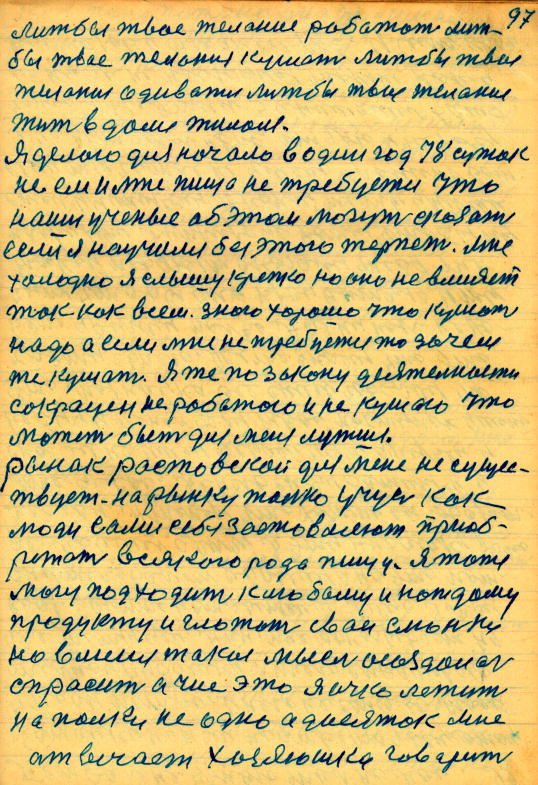 97
литбы твое желание работат лит-
бы твае желания кушат литбы твая
желания одивати литбы твия желания
жит в доми жилом.
Я делою для начало в один год 78 суток
не ем и мне пища не требуети что
наши ученые аб этом могут сказат
если я научили без этого терпет. мне
холодно я слышу крепко но оно не влияет
так как всем. знаю хорошо что кушат
надо а если мне не требуети то зачем
же кушат. Я же по закону деятелности
сокращен не работаю и не кушаю что
может быт для меня лутши.
рынак растовской для мене не сущес-
твует. на рынку толко учуся как
люди сами себя заставляют приоб-
ретат всякого рода пищу. я тоже
могу подходит к любому и каждому
продукту и глотат свои слюнки
но в меня такая мысел создалася
спрасит а чие это яичко лежит
на полки не одно а десяток мне
атвечает хозяюшка гаварит